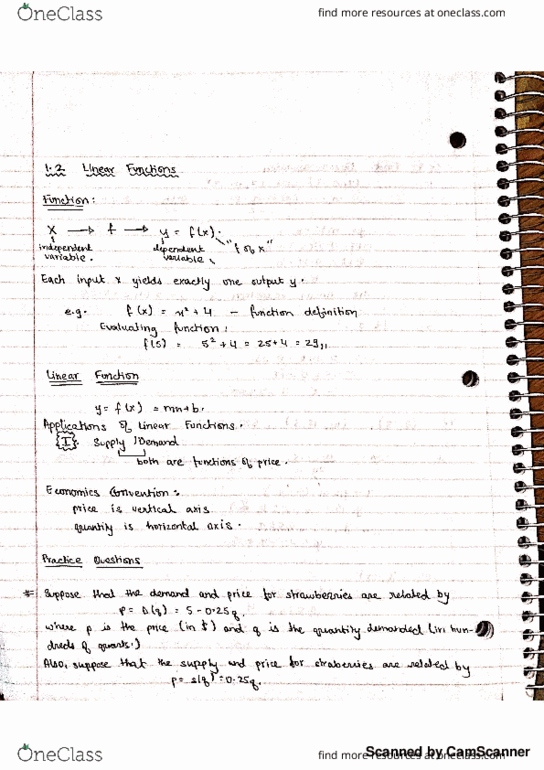 OneClass
find more resources at oneclass.com
1.2 Linear Functions
Function:
x → f → y = f(x).
"f of x"
independent variable.
dependent variable
Each input x yields exactly one output y.
e.g. f(x) = x² + 4 - function definition
Evaluating function:
f(5) = 5² + 4 = 25+4 = 29,,
Linear Function
y = f(x) = mx+b.
Applications of Linear Functions.
I Supply / Demand
both are functions of price.
Economics Convention:
price is vertical axis
quantity is horizontal axis.
Practice Questions
* Suppose that the demand and price for strawberries are related by
p = D(q) = 5 - 0.25q.
where p is the price (in $) and q is the quantity demanded (in hun-
dreds of quarts.)
Also, suppose that the supply and price for straberries are related by
p = s(q) = 0.25q.
OneClass
find more resources at oneclass.com
Scanned by CamScanner